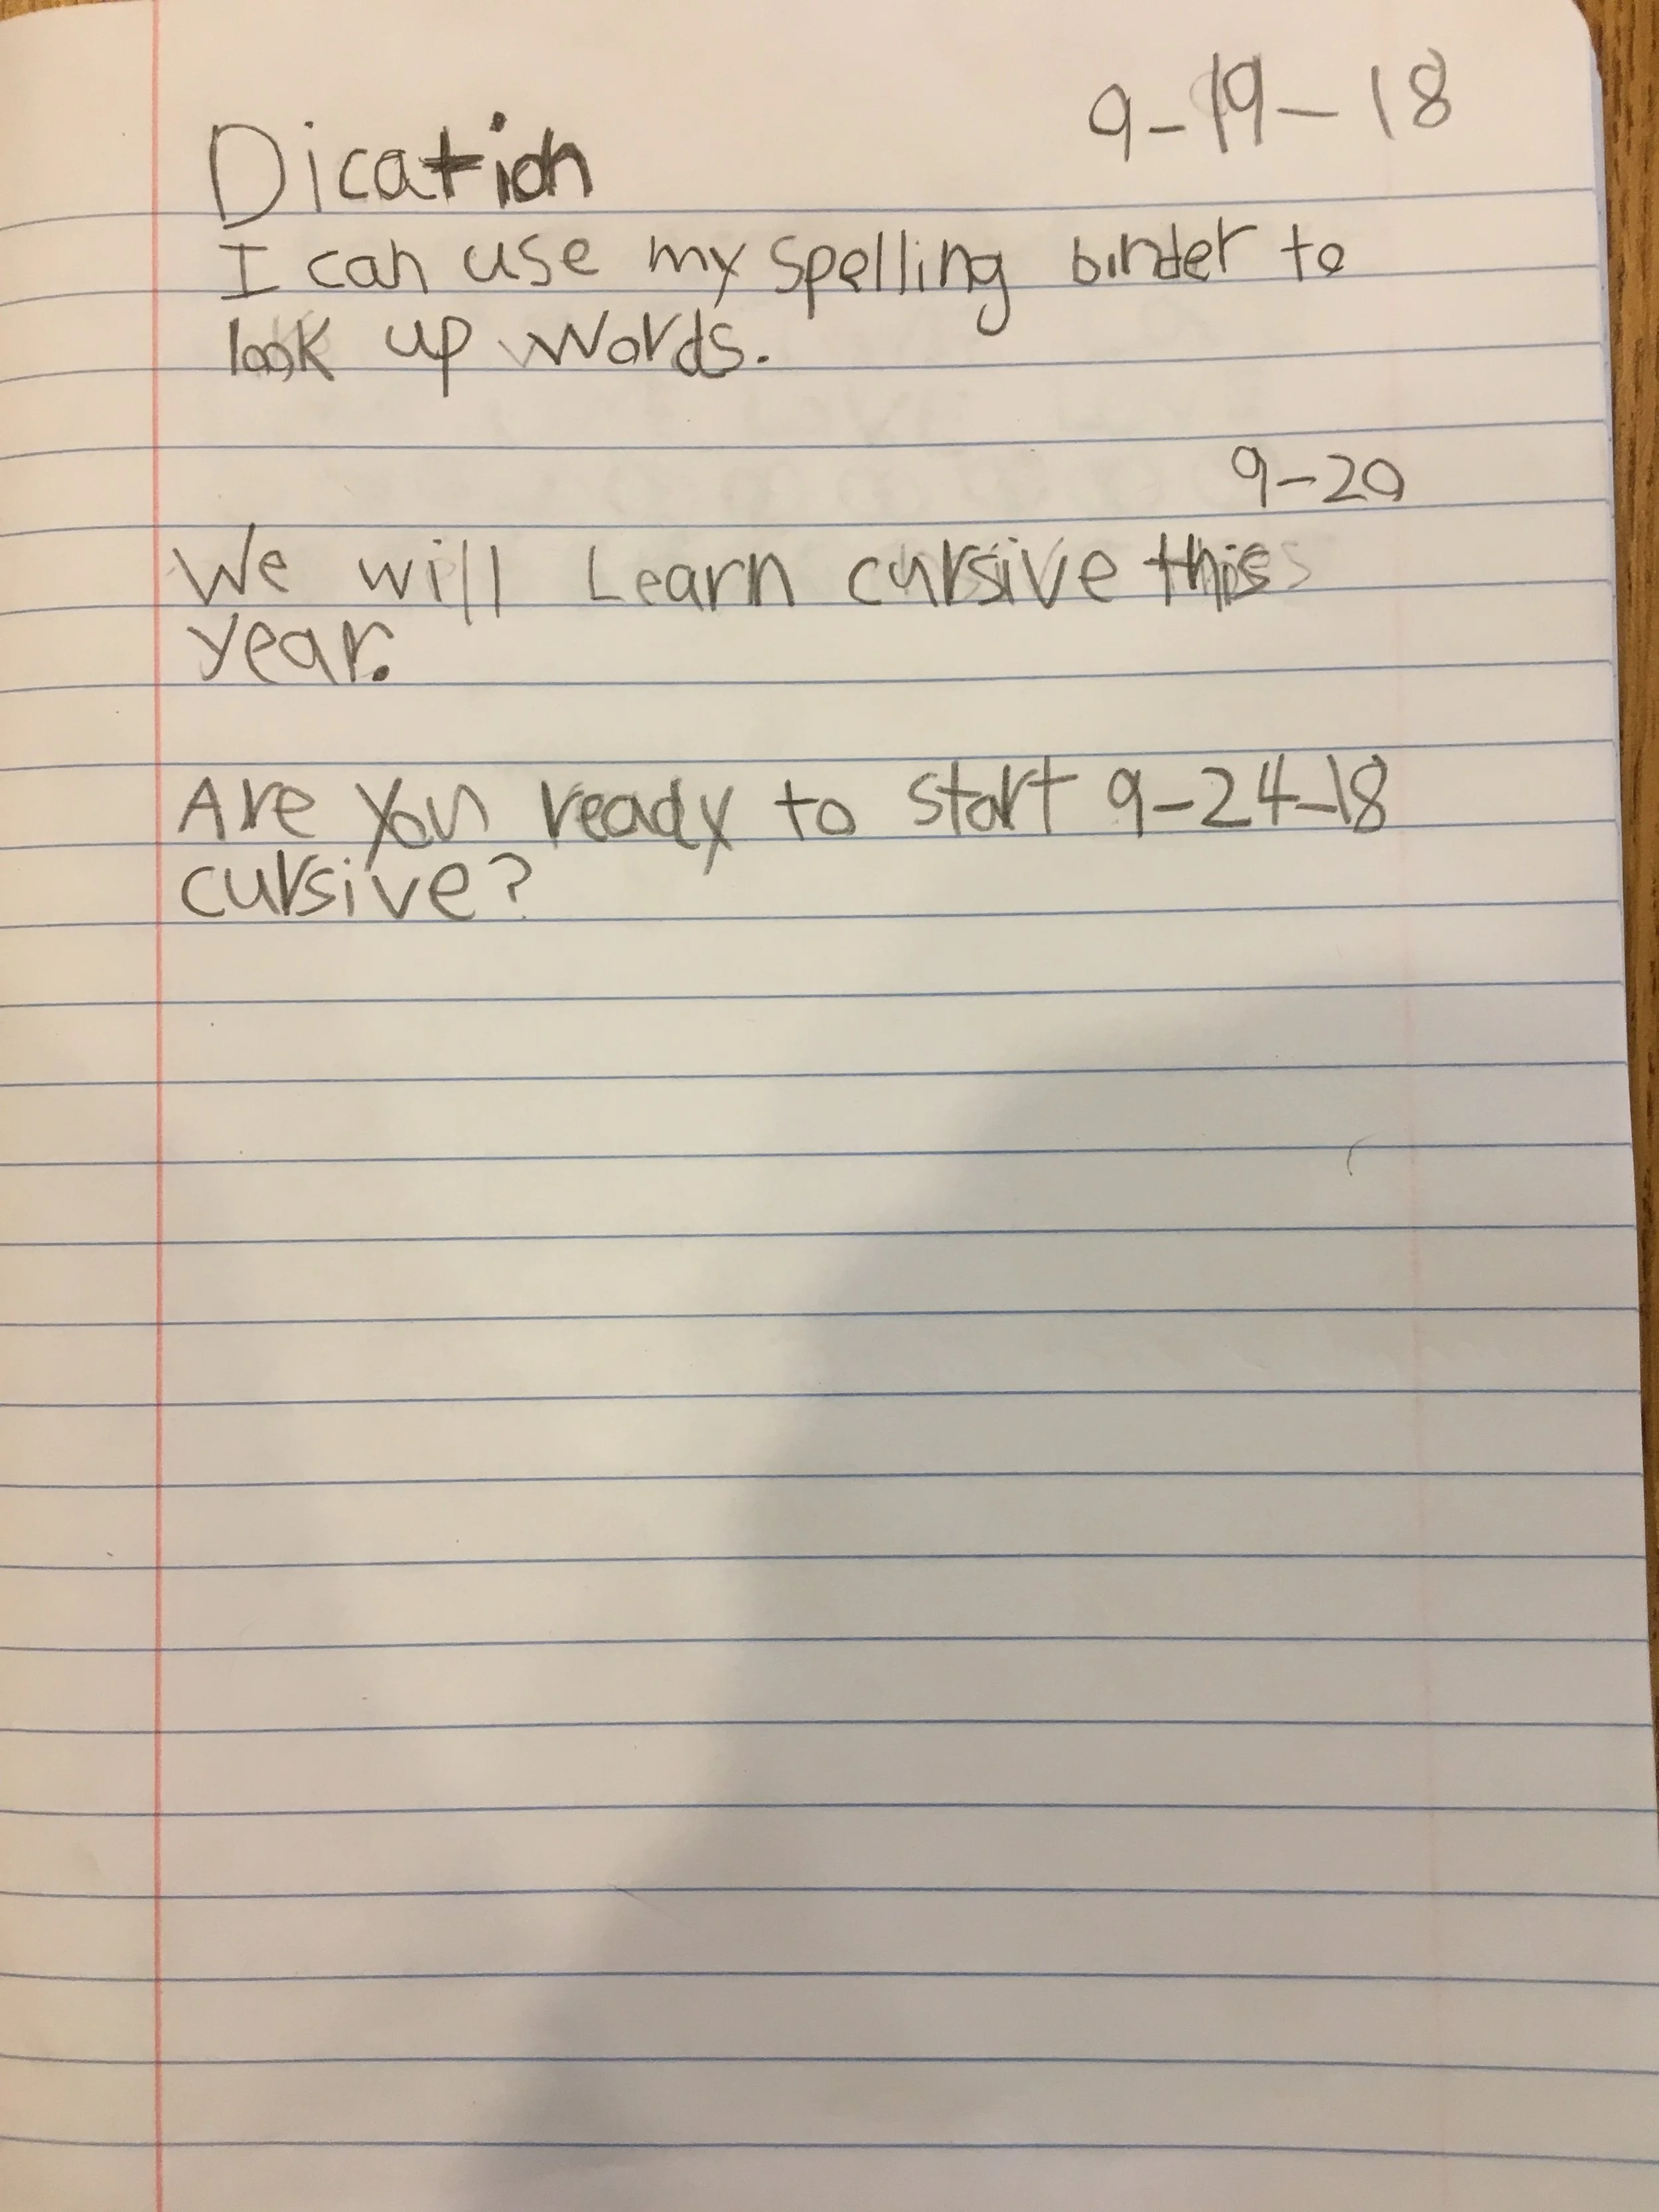 9-19-18
Dication
I can use my spelling binder to
look up words.
9-20
We will Learn cursive this
year.
Are you ready to start 9-24-18
cursive?